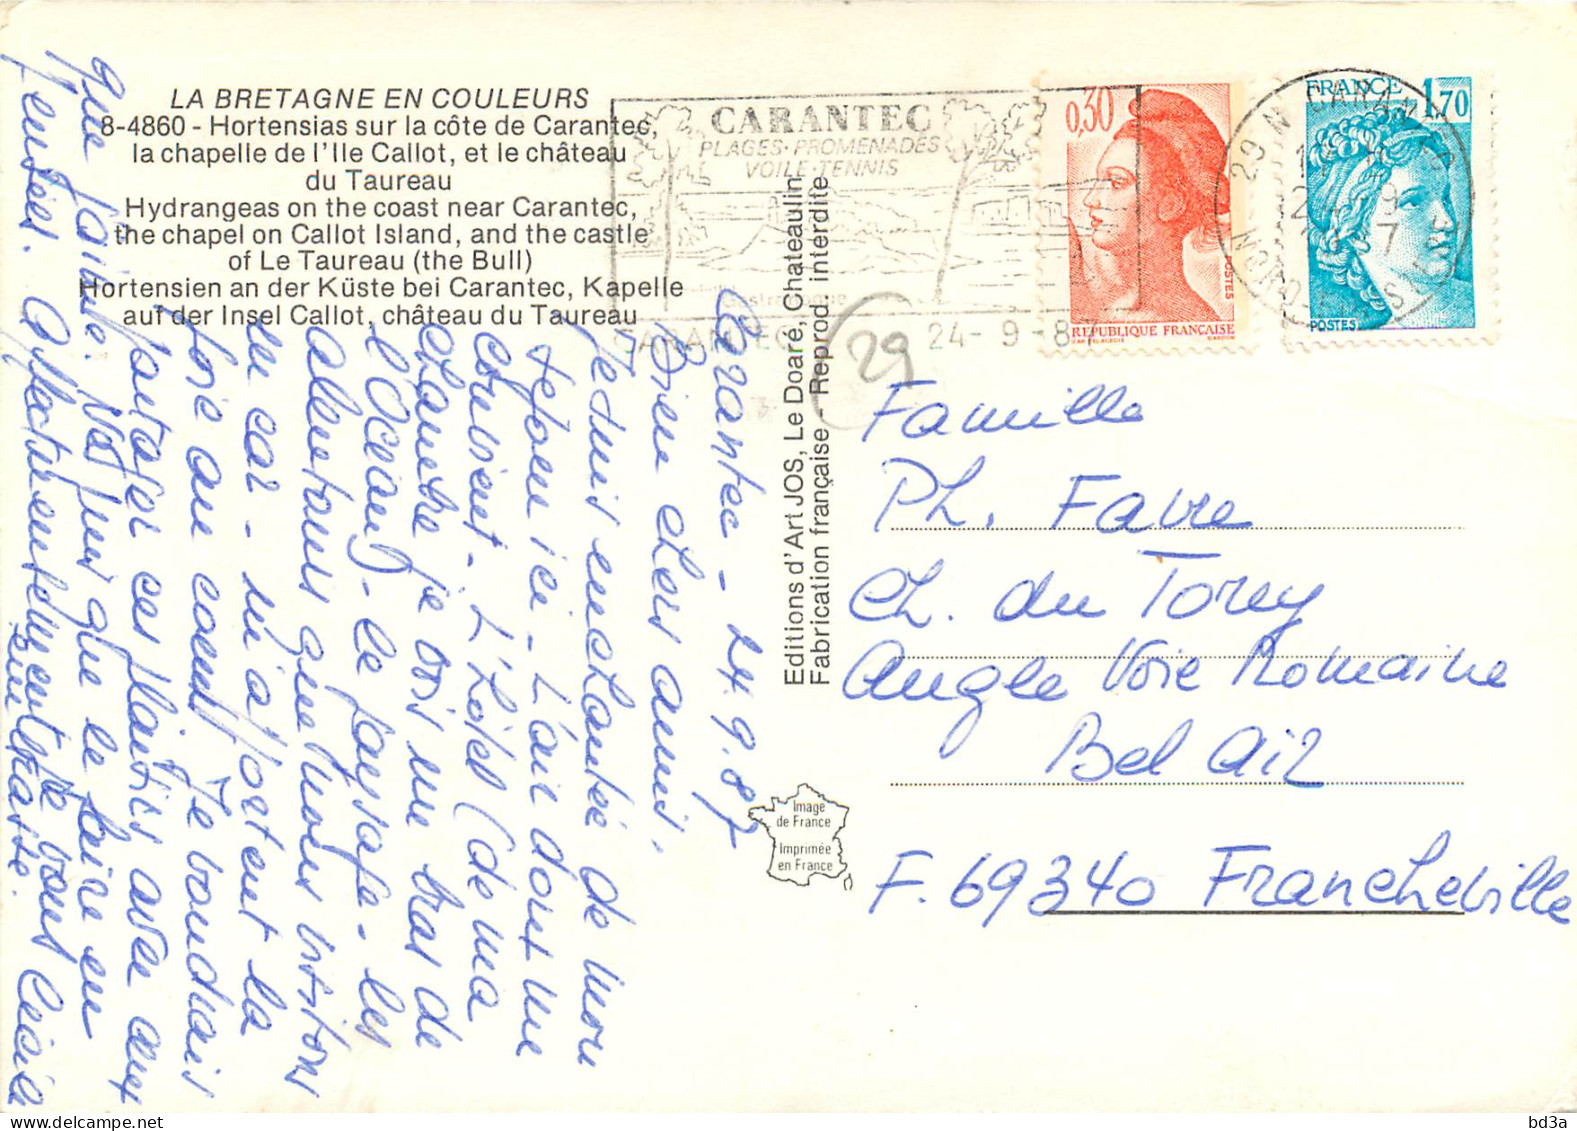 LA BRETAGNE EN COULEURS
8-4860 - Hortensias sur la côte de Carantec,
la chapelle de l'Ile Callot, et le château
du Taureau
Hydrangeas on the coast near Carantec,
the chapel on Callot Island, and the castle
of Le Taureau (the Bull)
Hortensien an der Küste bei Carantec, Kapelle
auf der Insel Callot, château du Taureau
CARANTEC
PLAGES·PROMENADES
VOILE·TENNIS
Gastronomique
CARANTEC
24-9-87
29
0,30
POSTES
REPUBLIQUE FRANÇAISE
FRANCE 1,70
POSTES
29 N
Editions d'Art JOS, Le Doaré, Chateaulin
Fabrication française - Reprod. interdite
Image
de France
Imprimée
en France
Carantec - 24.9.87
Bien chers amis,
Je suis enchantée de mon
séjour ici - L'air dont me
convient - L'Hôtel (de ma
chambre je vois un bras de
l'Océan) - le paysage - les
alentours que nous visitons
en car - m'apportent la
joie au coeur! Je voudrais
partager ces plaisirs avec ceux
que j'aime. Ne puis que le faire en
pensées. Affectueusement à vous
Cécile
Famille
Ph. Favre
Ch. du Torey
Angle Voie Romaine
Bel Air
F. 69340 Francheville
bd3a